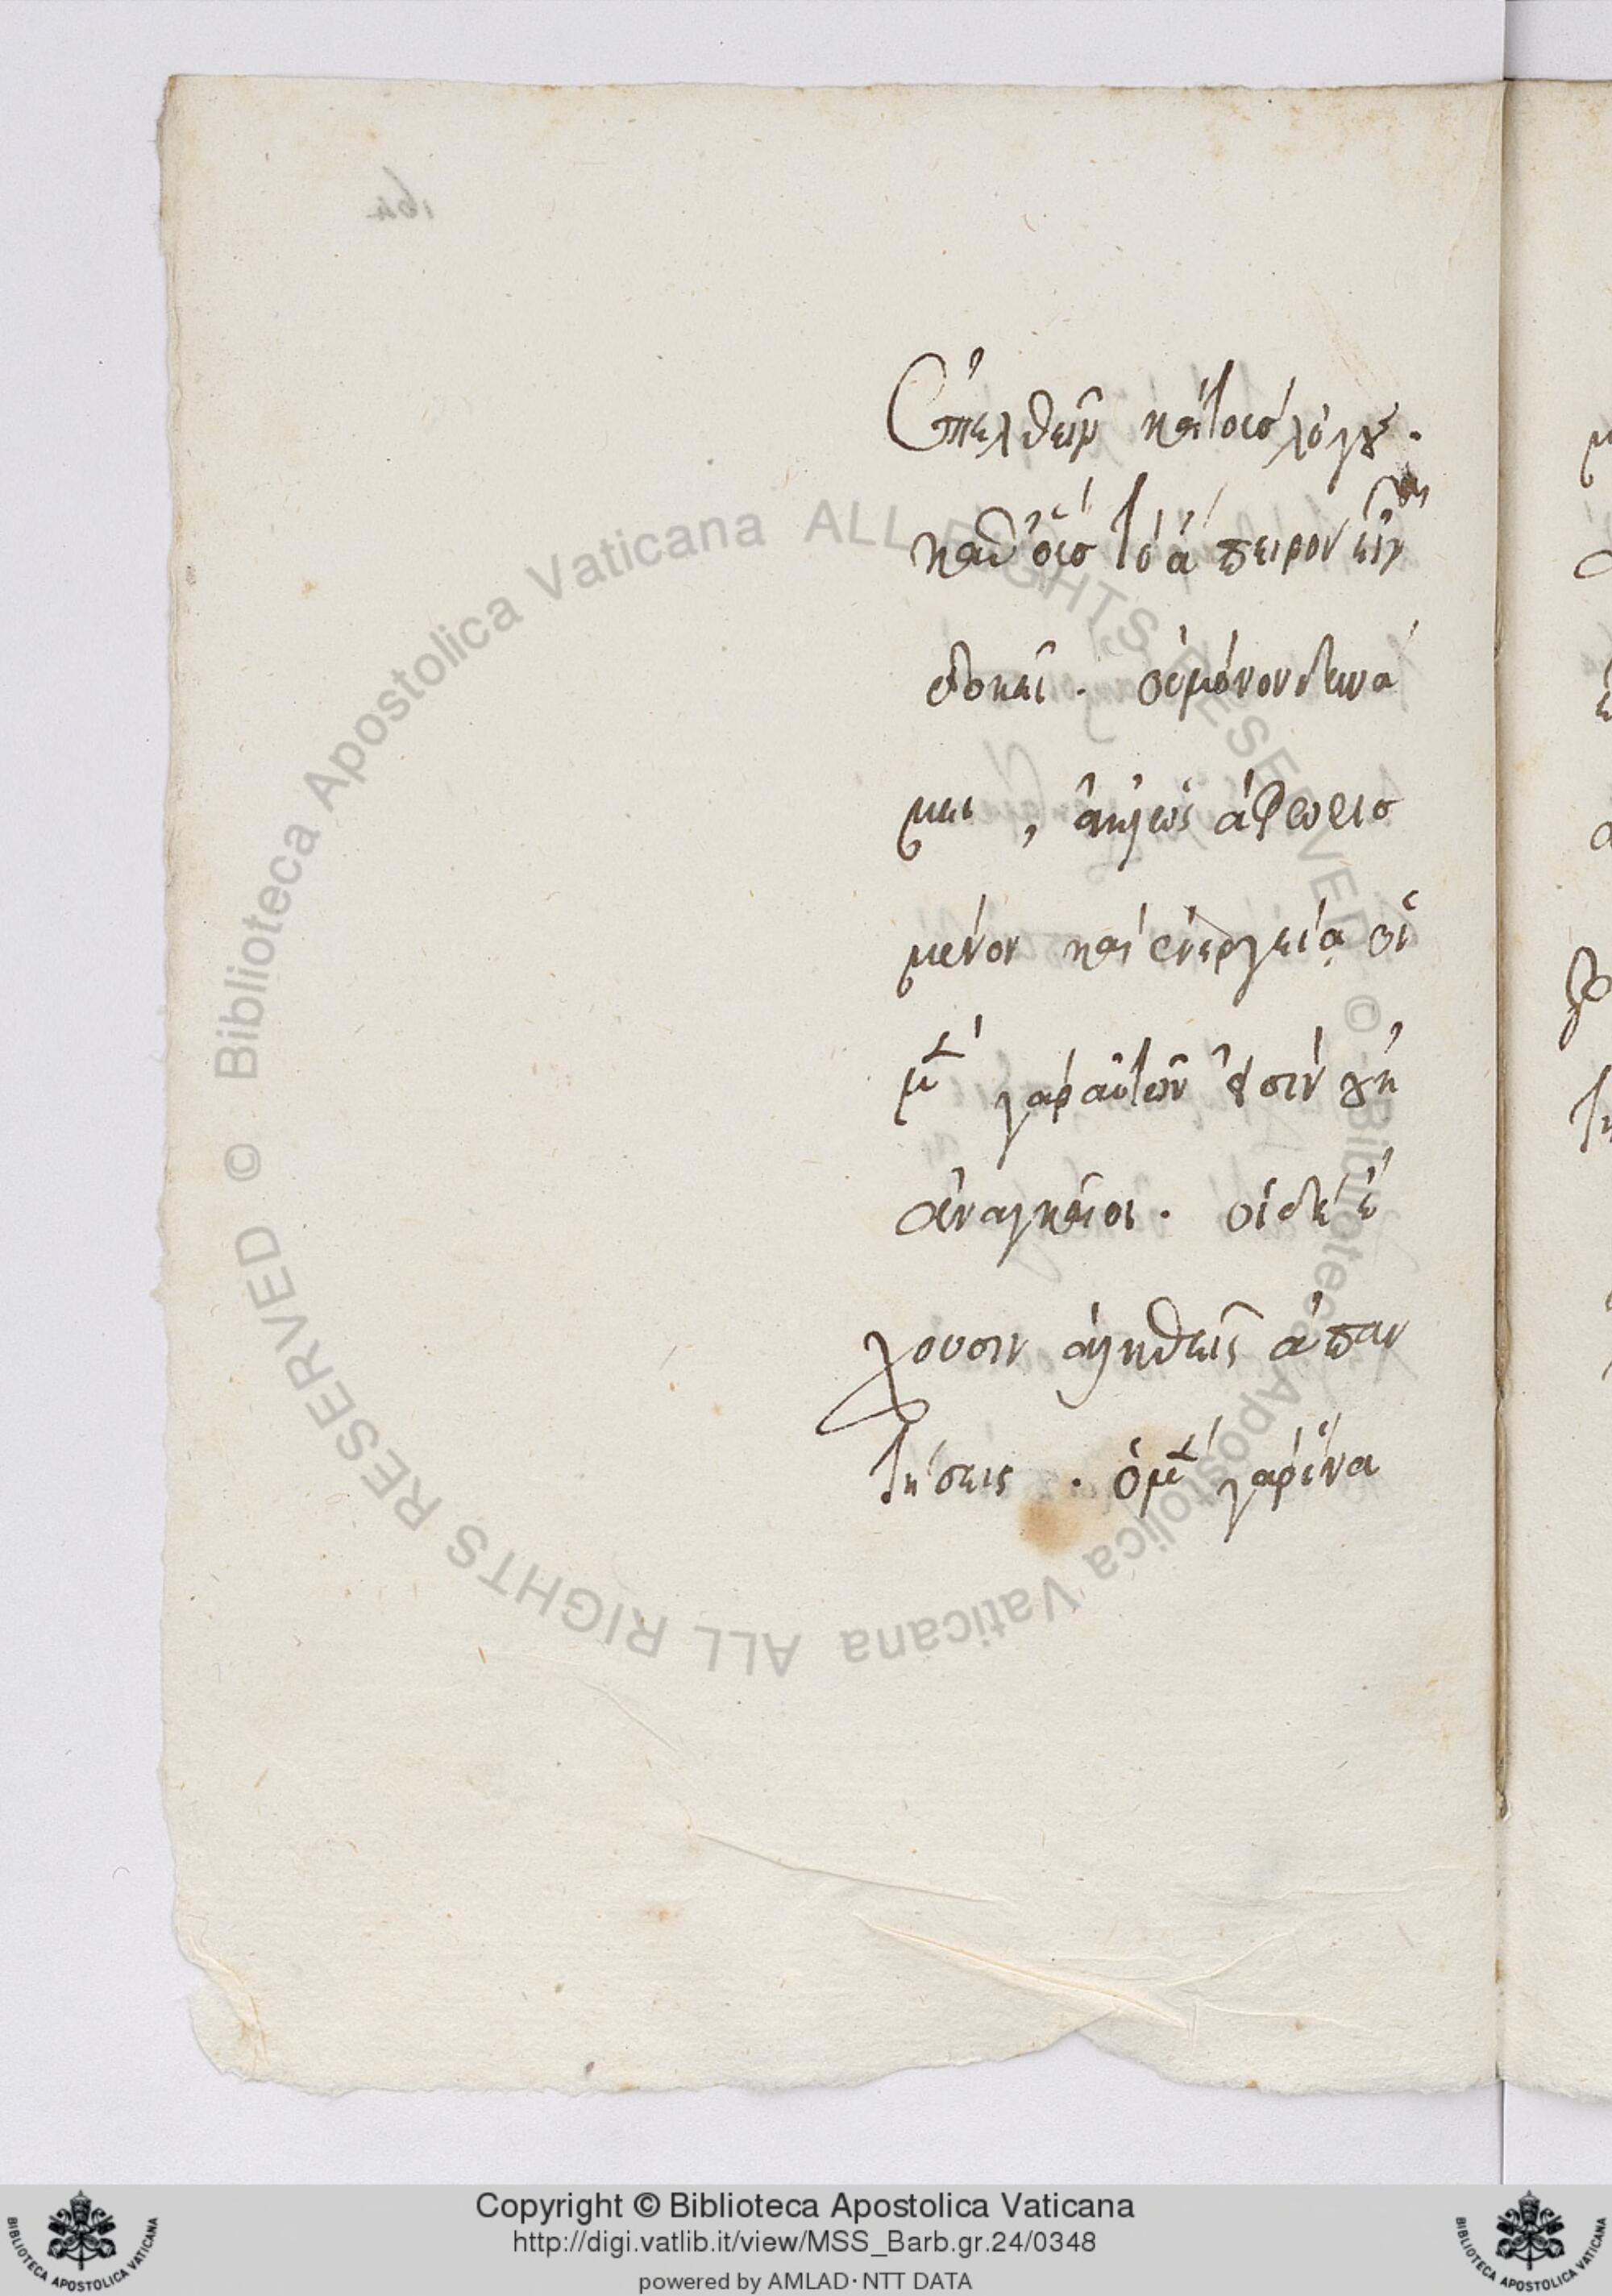 ἐπελθεῖν καὶ τοῖς λόγους.
καθ' οὓς τὸ ἄπειρον εἶναι
δοκεῖ. οὐ μόνον δυνά
μει, ἀλλ' ὡς ἀφωρισ
μένον καὶ ἐνεργείᾳ οἱ
μὲν γὰρ αὐτῶν εἰσὶν οὐκ
ἀναγκαῖοι. οἱ δὲ ἔ
χουσιν ἀληθεῖς ἀπαν
τήσεις. ὁ μὲν γὰρ ἵνα
Biblioteca Apostolica Vaticana ALL RIGHTS RESERVED ©
Biblioteca Apostolica Vaticana ALL RIGHTS RESERVED ©
Copyright © Biblioteca Apostolica Vaticana
http://digi.vatlib.it/view/MSS_Barb.gr.24/0348
powered by AMLAD · NTT DATA
BIBLIOTECA APOSTOLICA VATICANA
BIBLIOTECA APOSTOLICA VATICANA